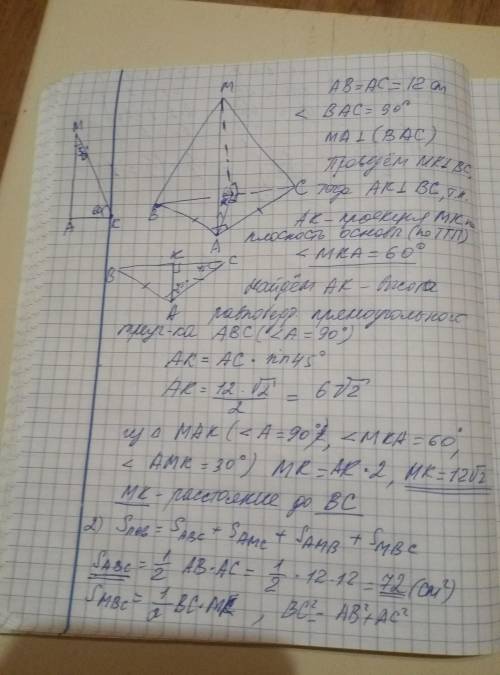 M
AB = AC = 12 см
< BAC = 90°
MA ⊥ (BAC)
Проведём MK ⊥ BC,
тогда AK ⊥ BC, т.к.
AK - проекция MK на
плоскость основы (по ТТП)
< MKA = 60°
B
C
A
A
K
60°
B
K
C
A
45°
Найдём AK - высота
равнобедр. прямоугольного
треуг-ка ABC (<A = 90°)
AK = AC · sin 45°
AK = 12 · √2 / 2 = 6√2
из Δ MAK (<A = 90°, <MKA = 60°,
< AMK = 30°) MK = AK · 2, MK = 12√2
MK - расстояние до BC
2) Sпов = S ABC + S AMC + S AMB + S MBC
S ABC = 1/2 AB · AC = 1/2 · 12 · 12 = 72 (см²)
S MBC = 1/2 BC · MK, BC² = AB² + AC²